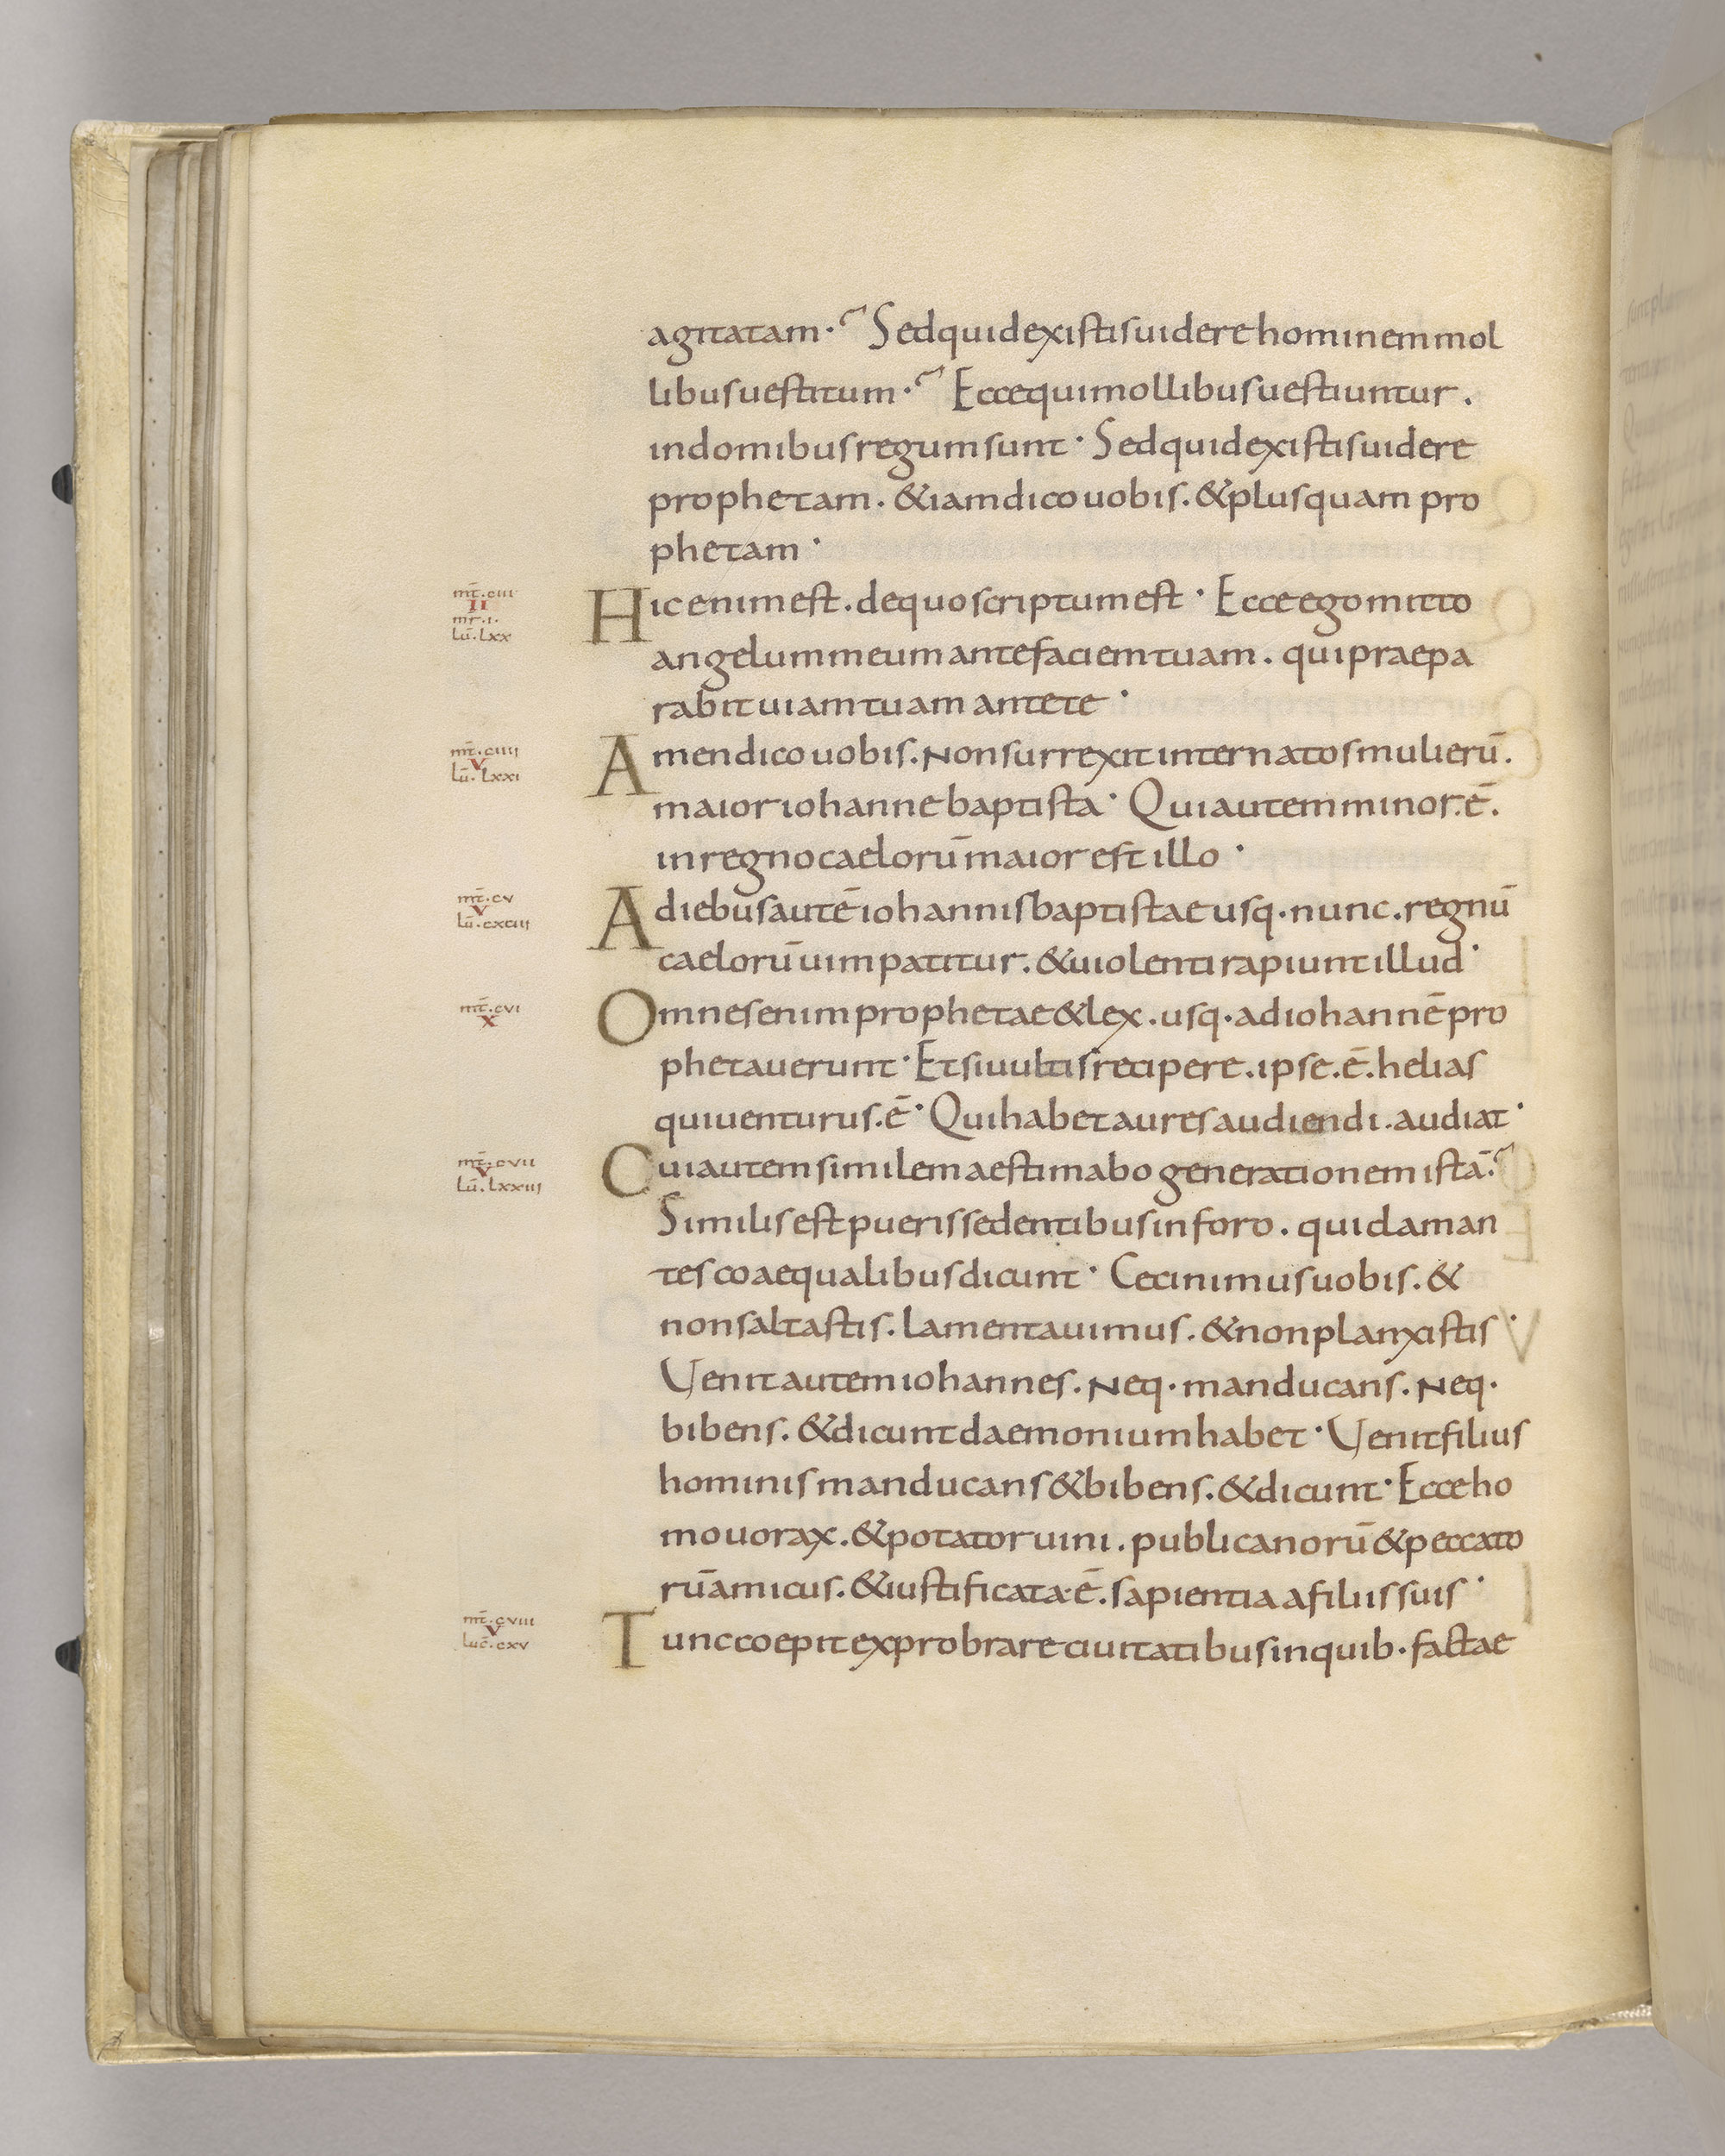 agitatam· Sed quid existis uidere hominem mol
libus uestitum· Ecce qui mollibus uestiuntur.
in domibus regum sunt· Sed quid existis uidere
prophetam. & iam dico uobis. & plus quam pro
phetam·
mt̄.ciii
II
mr.i.
Lū.Lxx
Hic enim est. de quo scriptum est· Ecce ego mitto
angelum meum ante faciem tuam. qui praepa
rabit uiam tuam ante te·
mt̄.ciiii
V
Lū.Lxxi
Amen dico uobis. Non surrexit inter natos mulierū.
maior iohanne baptista· Qui autem minor.ē.
in regno caelorū maior est illo·
mt̄.cv
V
Lū.cxciii
A diebus autē iohannis baptistae usq· nunc. regnū
caelorū uim patitur. & uiolenti rapiunt illud·
mt̄.cvi
X
Omnes enim prophetae & lex. usq· ad iohannē pro
phetauerunt· Et si uultis recipere. ipse.ē. helias
qui uenturus.ē· Qui habet aures audiendi. audiat·
mt̄.cvii
V
Lū.Lxxiii
Cui autem similem aestimabo generationem istā.
Similis est pueris sedentibus in foro. qui claman
tes coaequalibus dicunt· Cecinimus uobis. &
non saltastis. lamentauimus. & non planxistis·
Uenit autem iohannes. Neq· manducans. Neq·
bibens. & dicunt daemonium habet· Uenit filius
hominis manducans & bibens. & dicunt· Ecce ho
mo uorax. & potator uini. publicanorū & peccato
rū amicus. & iustificata·ē. sapientia a filiis suis·
mt̄.cviii
V
Luc̄.cxv
Tunc coepit exprobrare ciuitatibus in quib· factae